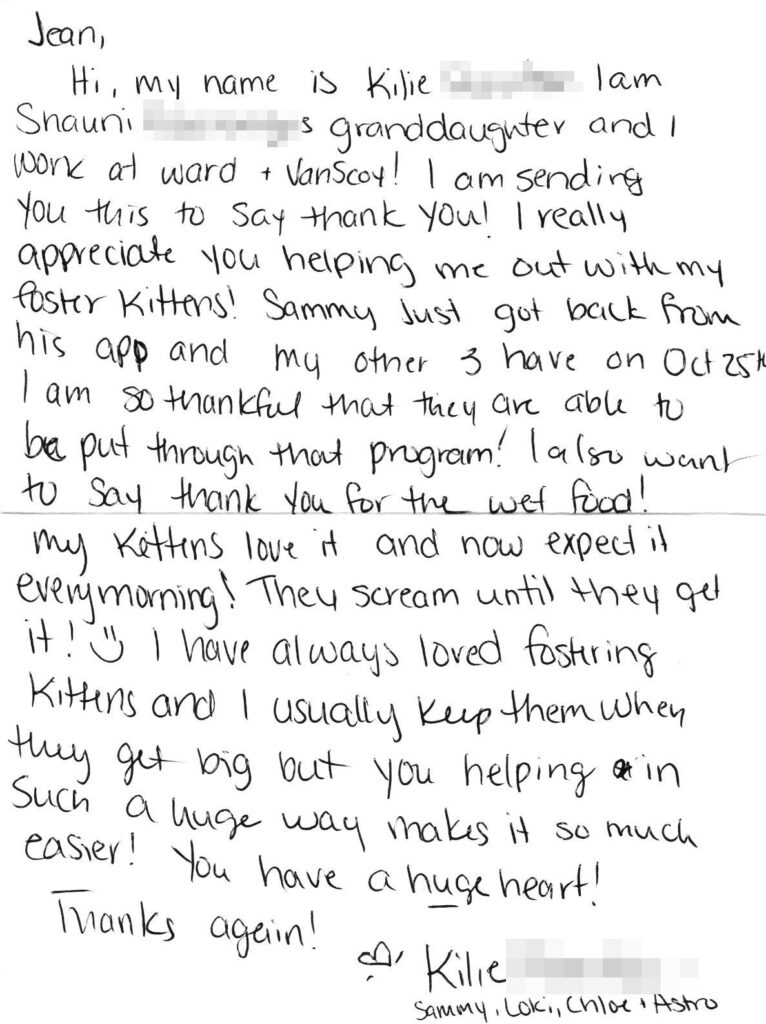 Jean,
Hi, my name is Kilie I am
Shauni s granddaughter and I
work at ward + VanScoy! I am sending
you this to say thank you! I really
appreciate you helping me out with my
foster kittens! Sammy just got back from
his app and my other 3 have on Oct 25th
I am so thankful that they are able to
be put through that program! I also want
to say thank you for the wet food!
my kittens love it and now expect it
everymorning! They scream until they get
it! I have always loved fostering
kittens and I usually keep them when
they get big but you helping in
such a huge way makes it so much
easier! You have a huge heart!
Thanks again!
Kilie
Sammy, Loki, Chloe + Astro